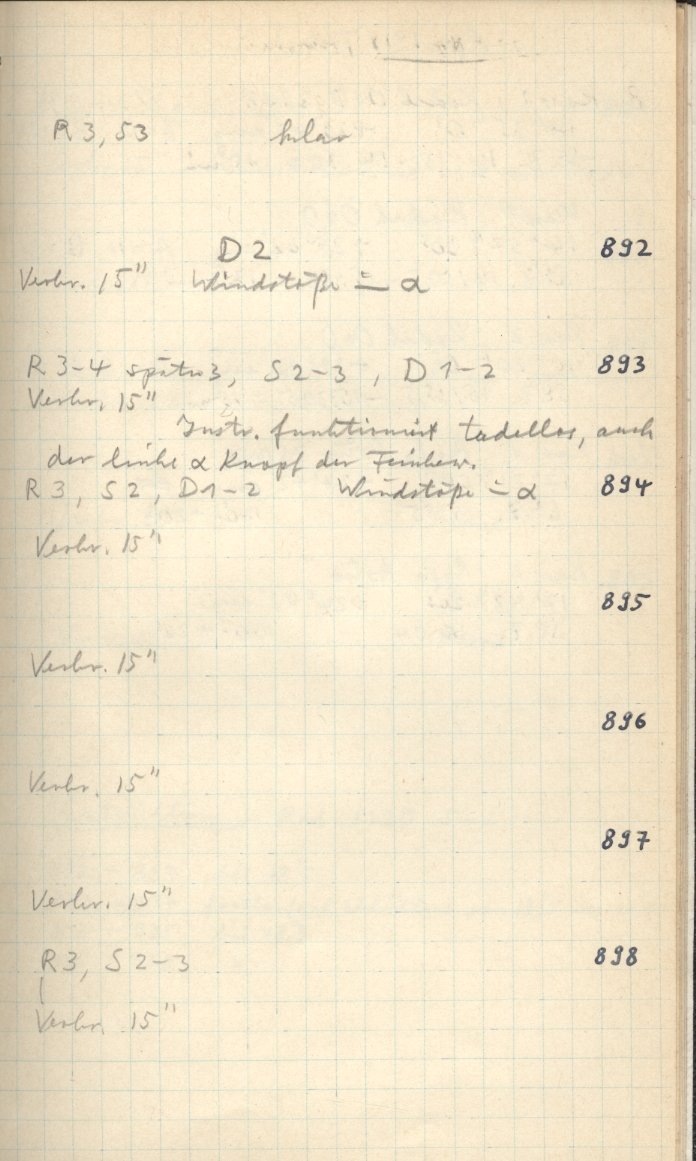 R 3, S3 klar
D 2 892
Verbr. 15" Windstöße = α
R 3-4 später 3, S 2-3, D 1-2 893
Verbr. 15"
Instr. funktioniert tadellos, auch
der linke α Knopf der Feinbew.
R 3, S 2, D 1-2 Windstöße = α 894
Verbr. 15"
895
Verbr. 15"
896
Verbr. 15"
897
Verbr. 15"
R 3, S 2-3 898
Verbr. 15"